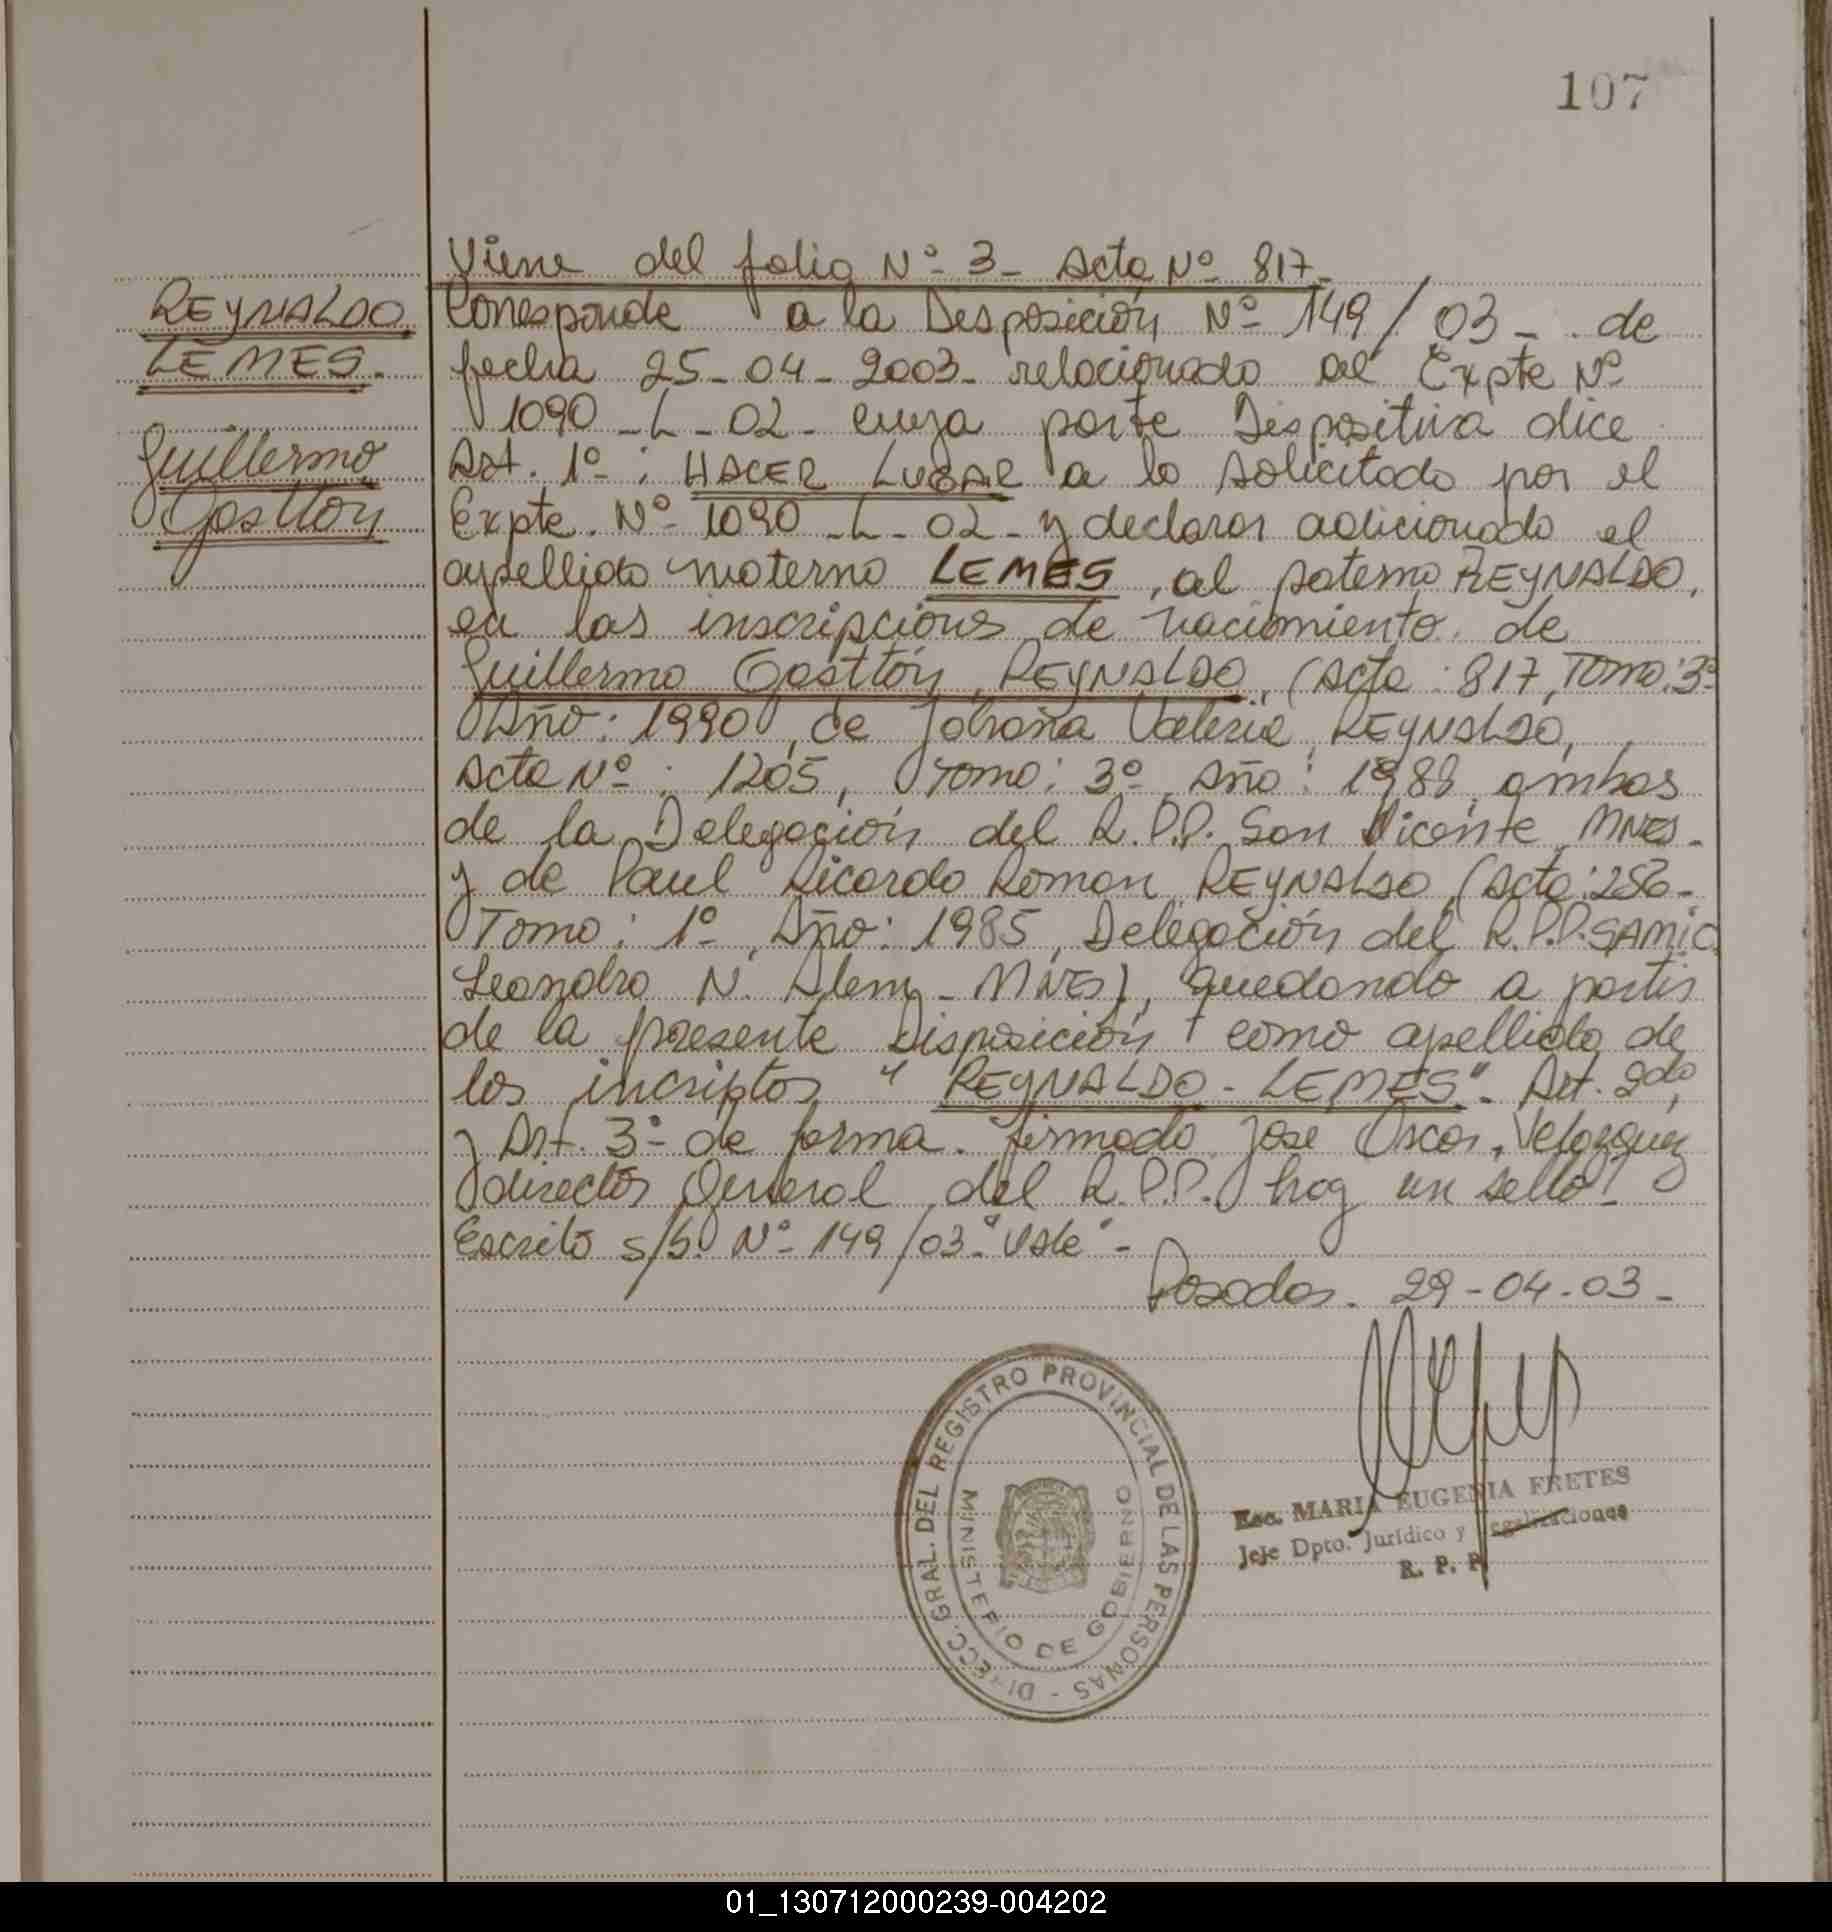 107
Viene del folio Nº 3 - Acta Nº 817 -
REYNALDO
LEMES.
Guillermo
Gastton
Corresponde a la Disposición Nº 149/03 - de
fecha 25-04-2003- relacionado al Expte Nº
1090-L-02- cuya parte Dispositiva dice
Art. 1º: HACER LUGAR a lo solicitado por el
Expte. Nº 1090-L-02- y declarar adicionado el
apellido materno LEMES, al paterno REYNALDO,
en las inscripciones de nacimiento de
Guillermo Gasttón REYNALDO, (Acta: 817, Tomo: 3º
Año: 1990, de Johana Valeria REYNALDO,
Acta Nº: 1205, Tomo: 3º Año: 1988, ambos
de la Delegación del R.P.P. San Vicente, MNES.
y de Paul Ricardo Roman REYNALDO, (Acta: 256-
Tomo: 1º, Año: 1985, Delegación del R.P.P. SAMIC.
Leandro N. Alem - MNES), quedando a partir
de la presente Disposición como apellido de
los incriptos "REYNALDO - LEMES". Art. 2do,
y Art. 3º de forma. firmado Jose Oscar Velazquez
director General del R.P.P. hay un sello!
Escrito s/b. Nº 149/03 "Vale" -
Posadas. 29-04-03-
DIRECC. GRAL. DEL REGISTRO PROVINCIAL DE LAS PERSONAS -
MINISTERIO DE GOBIERNO
Esc. MARIA EUGENIA FRETES
Jefe Dpto. Jurídico y Legalizaciones
R. P. P.
01_130712000239-004202